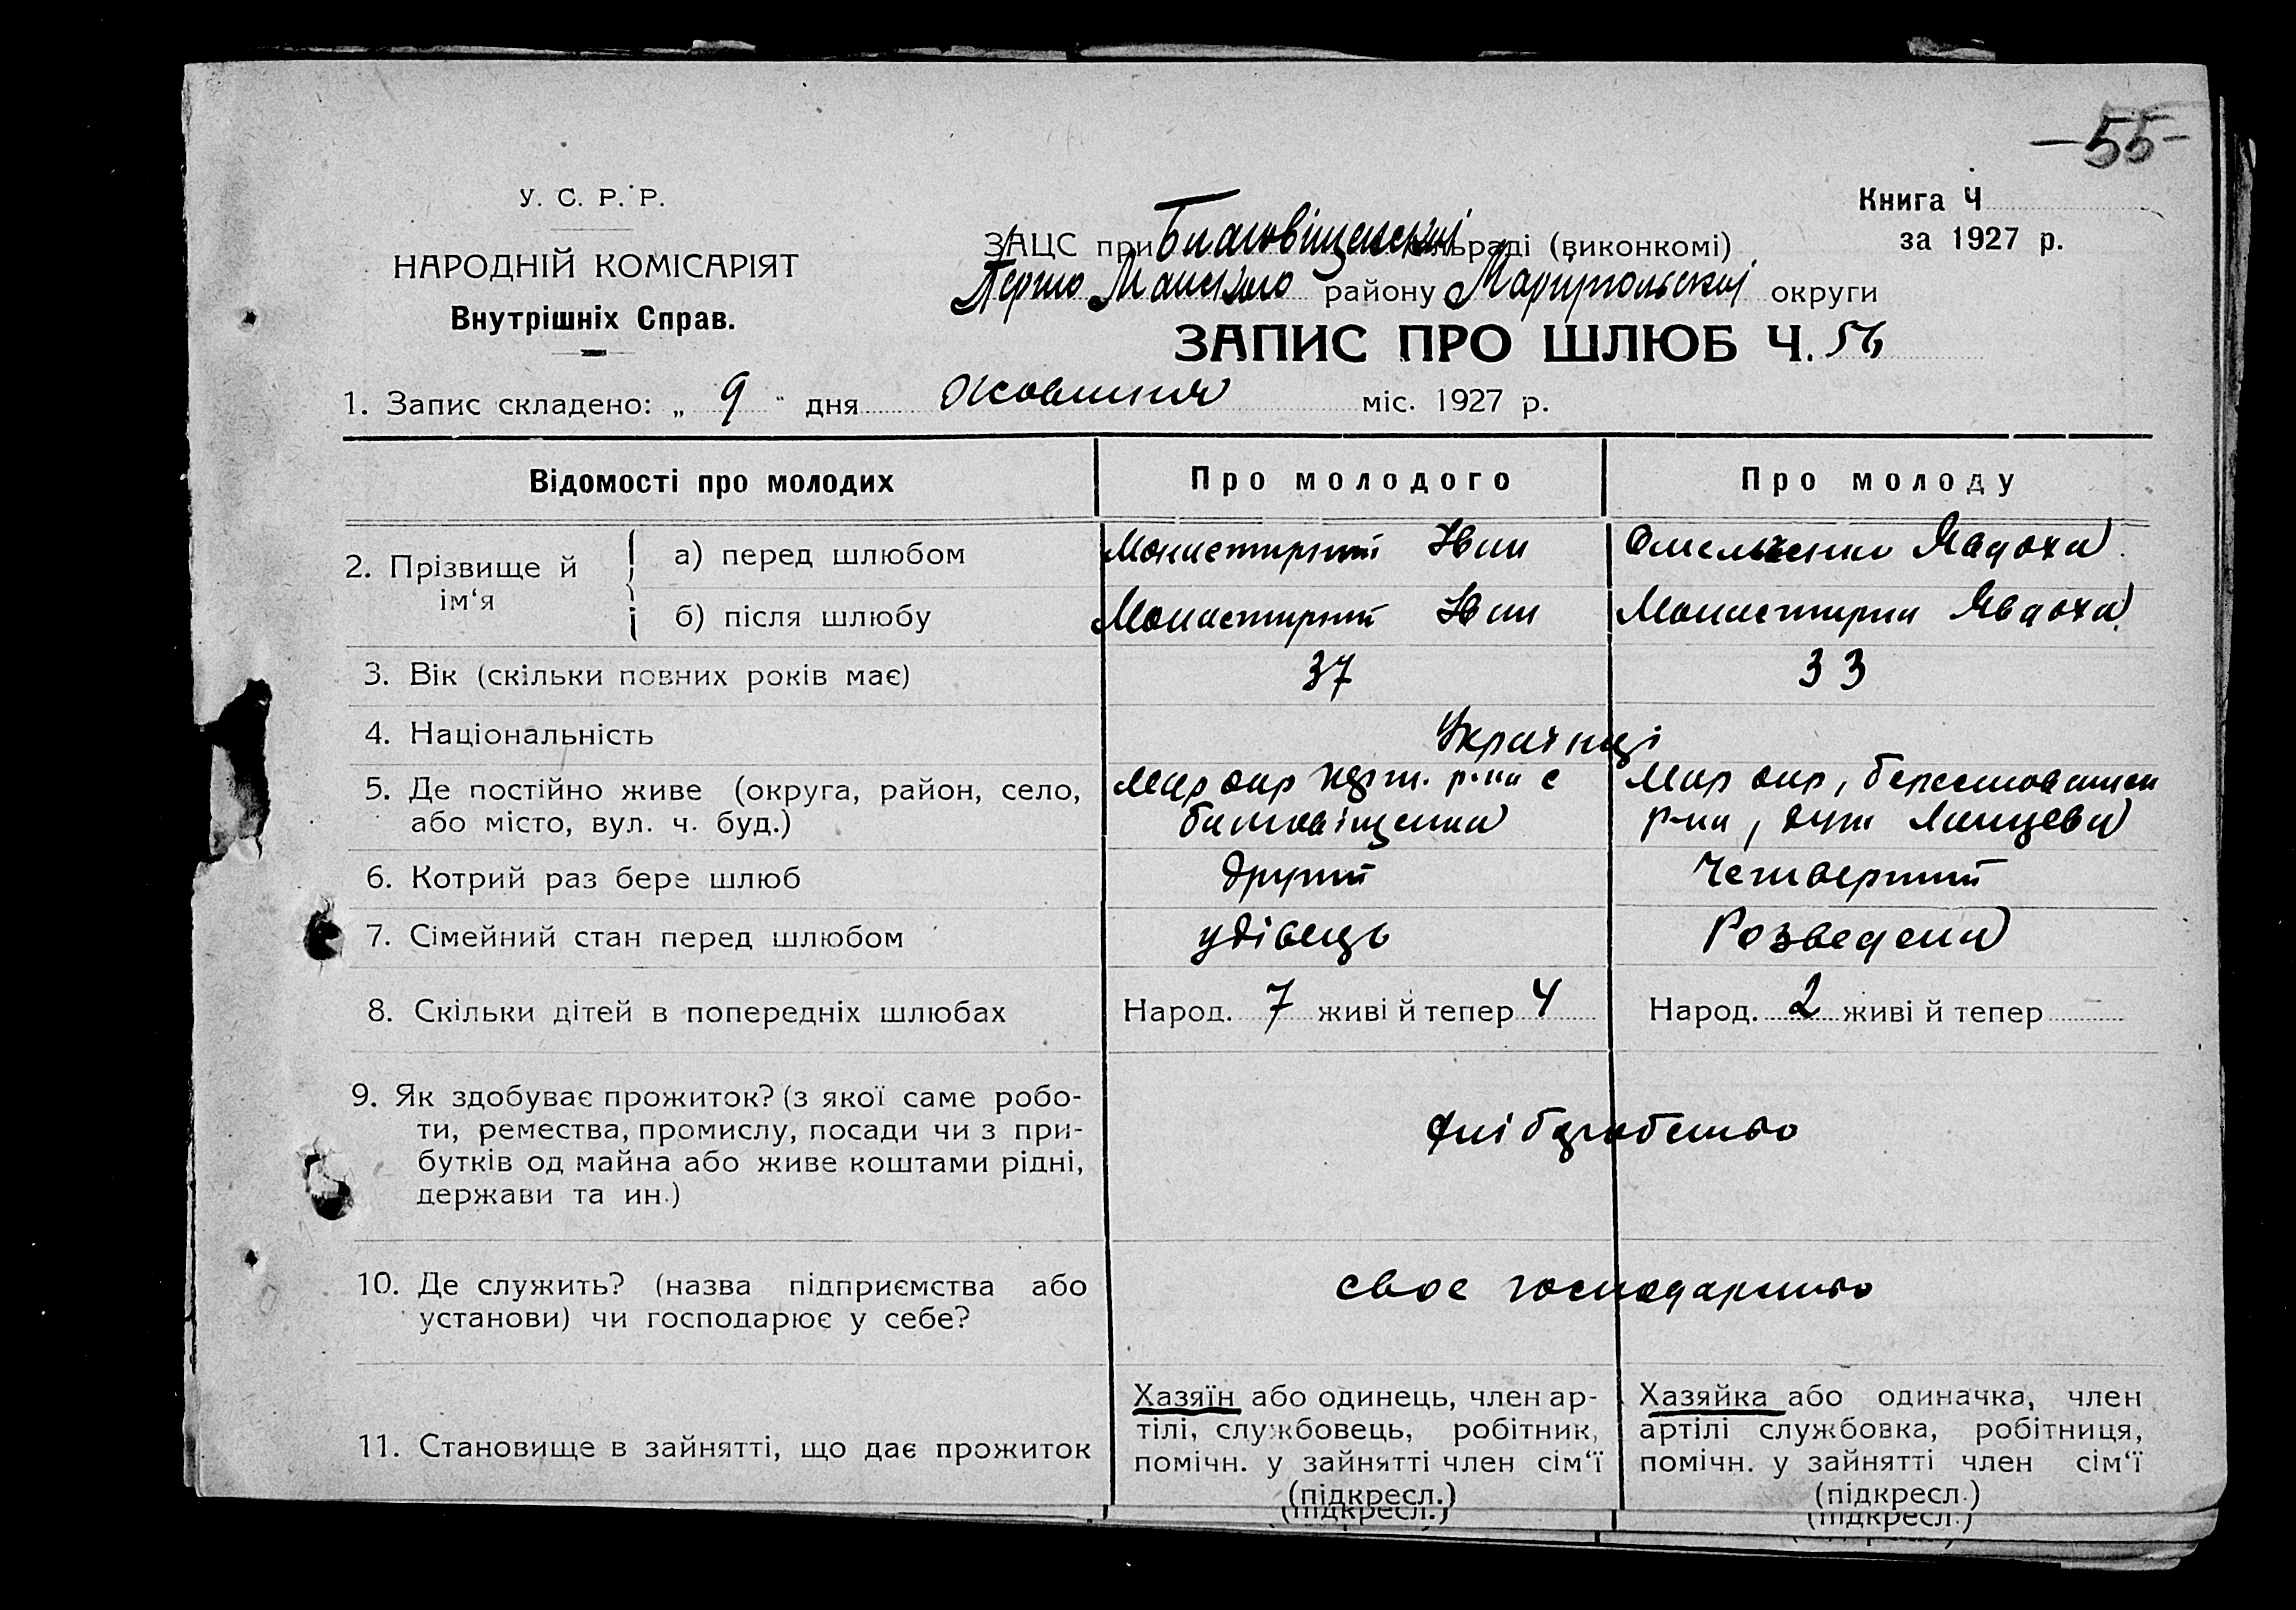 -55-
У. С. Р. Р.
НАРОДНІЙ КОМІСАРІЯТ
Внутрішніх Справ.
Книга Ч
за 1927 р.
ЗАЦС при Благовіщенській сільраді (виконкомі)
Першо району Маріупольської округи
ЗАПИС ПРО ШЛЮБ Ч. 56
1. Запис складено: „ 9 " дня жовтня міс. 1927 р.
Відомості про молодих
Про молодого
Про молоду
2. Прізвище й ім‘я
а) перед шлюбом
Монастирний Іван
Омельченко Явдоха
б) після шлюбу
Монастирний Іван
Монастирна Явдоха
3. Вік (скільки повних років має)
37
33
4. Національність
Українці
5. Де постійно живе (округа, район, село,
або місто, вул. ч. буд.)
Мар окр р-на с
Благовіщенка
Мар окр,
р-на,
6. Котрий раз бере шлюб
другий
Четвертий
7. Сімейний стан перед шлюбом
удівець
Розведена
8. Скільки дітей в попередніх шлюбах
Народ. 7 живі й тепер 4
Народ. 2 живі й тепер
9. Як здобуває прожиток? (з якої саме робо-
ти, ремества, промислу, посади чи з при-
бутків од майна або живе коштами рідні,
держави та ин.)
хліборобство
10. Де служить? (назва підприємства або
установи) чи господарює у себе?
своє господарство
11. Становище в зайнятті, що дає прожиток
Хазяїн або одинець, член ар-
тілі, службовець, робітник,
помічн. у зайнятті член сім‘ї
(підкресл.)
Хазяйка або одиначка, член
артілі службовка, робітниця,
помічн. у зайнятті член сім‘ї
(підкресл.)
(підкресл.)
(підкресл.)